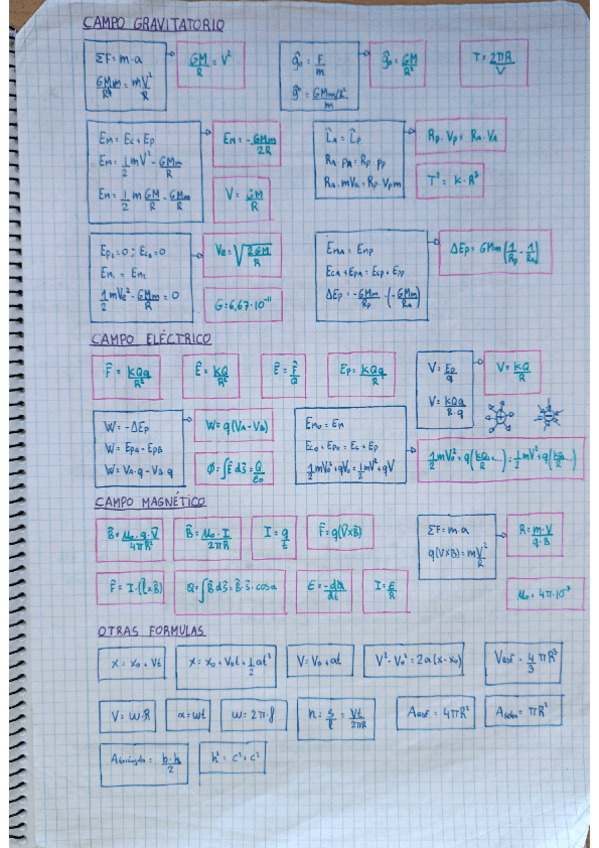 CAMPO GRAVITATORIO
ΣF = m·a
GMm/R² = mV²/R
GM/R = V²
g₀ = F/m
g = GMm/R²/m
g₀ = GM/R²
T = 2πR/V
Em = Ec + Ep
Em = 1/2 mV² - GMm/R
Em = 1/2 m GM/R - GMm/R
Em = -GMm/2R
V = GM/R
L_A = L_p
R_A · p_A = R_p · p_p
R_A · mV_A = R_p · V_p m
R_p · V_p = R_A · V_A
T² = K · R³
Ep₂ = 0 ; Ec₂ = 0
Em₁ = Em₂
1/2 mVe² - GMm/R = 0
Ve = √(2GM/R)
G = 6,67·10⁻¹¹
Em_A = Em_p
Ec_A + Ep_A = Ec_p + E_pp
ΔEp = -GMm/R_p - (-GMm/R_A)
ΔEp = GMm (1/R_p - 1/R_A)
CAMPO ELÉCTRICO
F = KQq/R²
E = KQ/R²
E = F/Q
Ep = KQq/R
V = Ep/q
V = KQq/R·q
V = KQ/R
W = -ΔEp
W = EpA - EpB
W = VA·q - VB·q
W = q(VA - VB)
Φ = ∫E dS = Q/ε₀
Em₀ = Em
Ec₀ + Ep₀ = Ec + Ep
1/2 mV₀² + qV₀ = 1/2 mV² + qV
1/2 mV₀² + q(KQ/R + ...) = 1/2 mV² + q(KQ/R ...)
CAMPO MAGNÉTICO
B = μ₀·q·V/4πR²
B = μ₀·I/2πR
I = q/t
F = q(V×B)
ΣF = m·a
q(V×B) = mV²/R
R = m·V/q·B
F = I·(l×B)
Q = ∫B dS = B·S·cosα
E = -dQ/dt
I = E/R
μ₀ = 4π·10⁻⁷
OTRAS FORMULAS
x = x₀ + Vt
x = x₀ + V₀t + 1/2 at²
V = V₀ + at
V² - V₀² = 2a(x - x₀)
Vesf = 4/3 πR³
V = ω·R
α = ωt
ω = 2π·f
n = s/l = Vt/2πR
Aesf = 4πR²
πR²
Atriángulo = b·h/2
h² = c² + c²